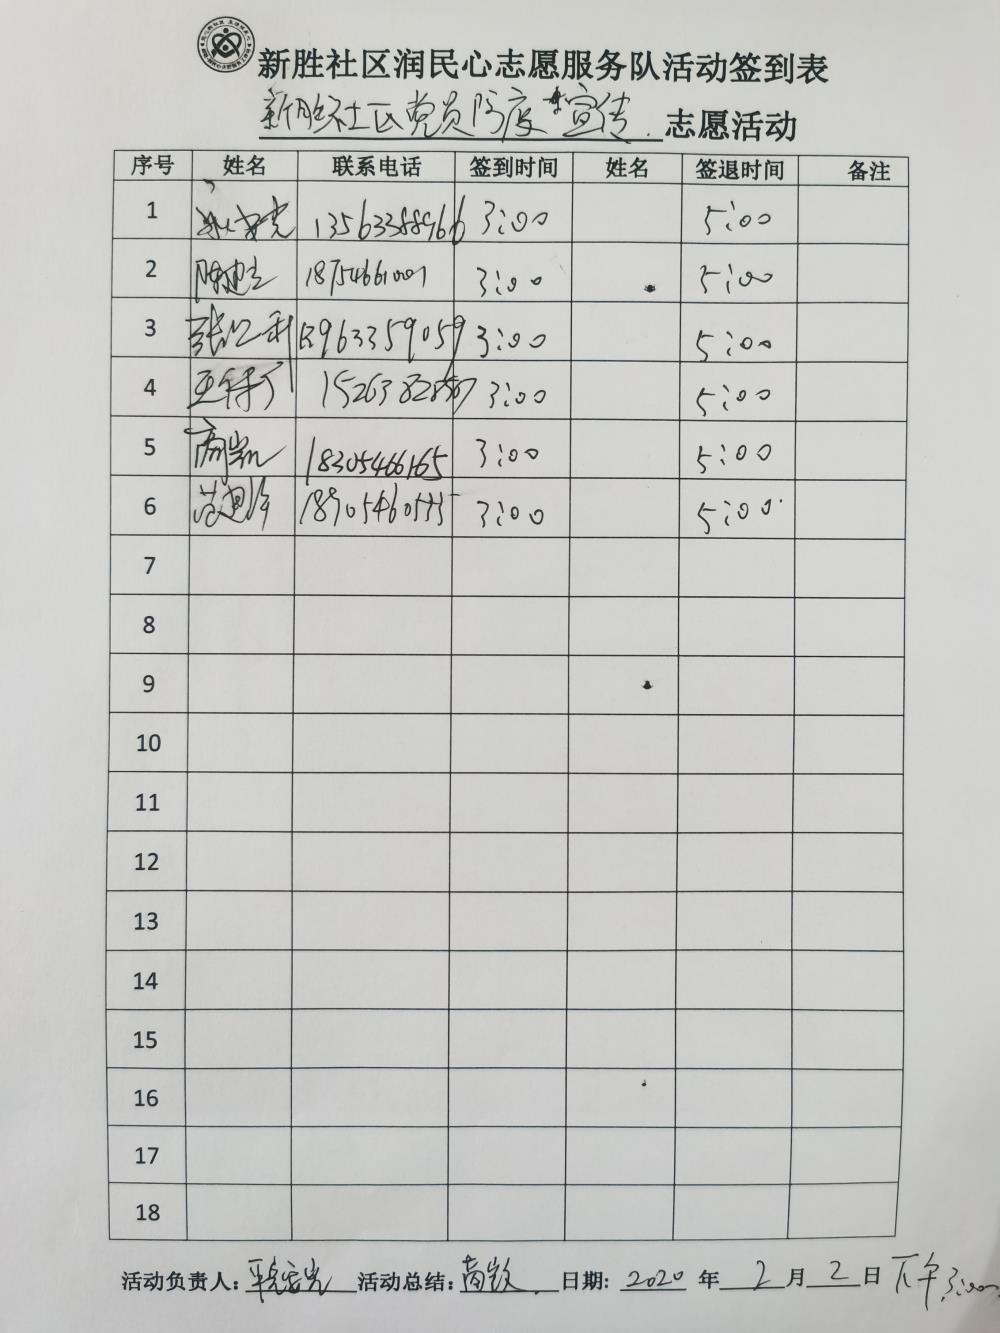 新胜社区润民心志愿服务队活动签到表
新胜社区党员防疫宣传 志愿活动
序号 姓名 联系电话 签到时间 姓名 签退时间 备注
1 13563388966 3:00 5:00
2 陈建立 18754661001 3:00 5:00
3 张仁利 3:00 5:00
4 3:00 5:00
5 商岩 18305466165 3:00 5:00
6 范建华 18905460555 3:00 5:00
7
8
9
10
11
12
13
14
15
16
17
18
活动负责人: 活动总结: 日期: 2020 年 2 月 2 日 下午3:00